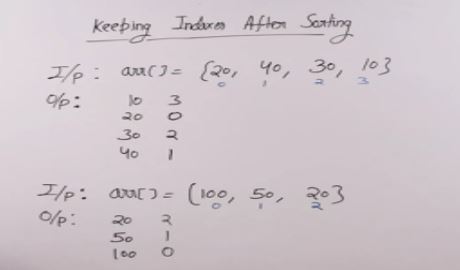 Keeping Indexes After Sorting
I/p : arr[] = {20, 40, 30, 10}
0 1 2 3
O/p : 10 3
20 0
30 2
40 1
I/p : arr[] = {100, 50, 20}
0 1 2
O/p : 20 2
50 1
100 0